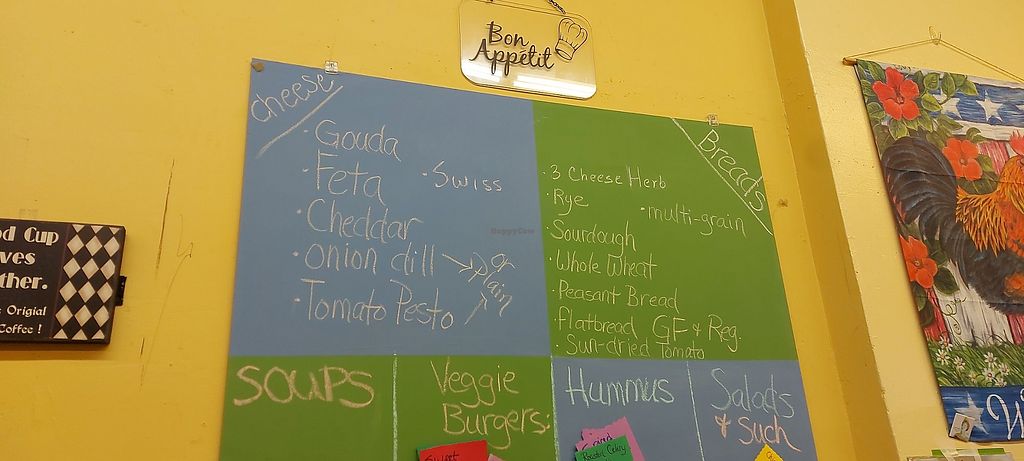 Bon
Appétit
cheese
· Gouda
· Feta
· Swiss
· Cheddar
· onion dill → or
Plain
· Tomato Pesto
Breads
· 3 Cheese Herb
· Rye
· multi-grain
· Sourdough
· Whole Wheat
· Peasant Bread
· flatbread GF & Reg.
· Sun-dried Tomato
SOUPS
Veggie
Burgers:
Hummus
Salads
& Such
Sweet
Cup
ther.
Origial
Coffee !
HappyCow